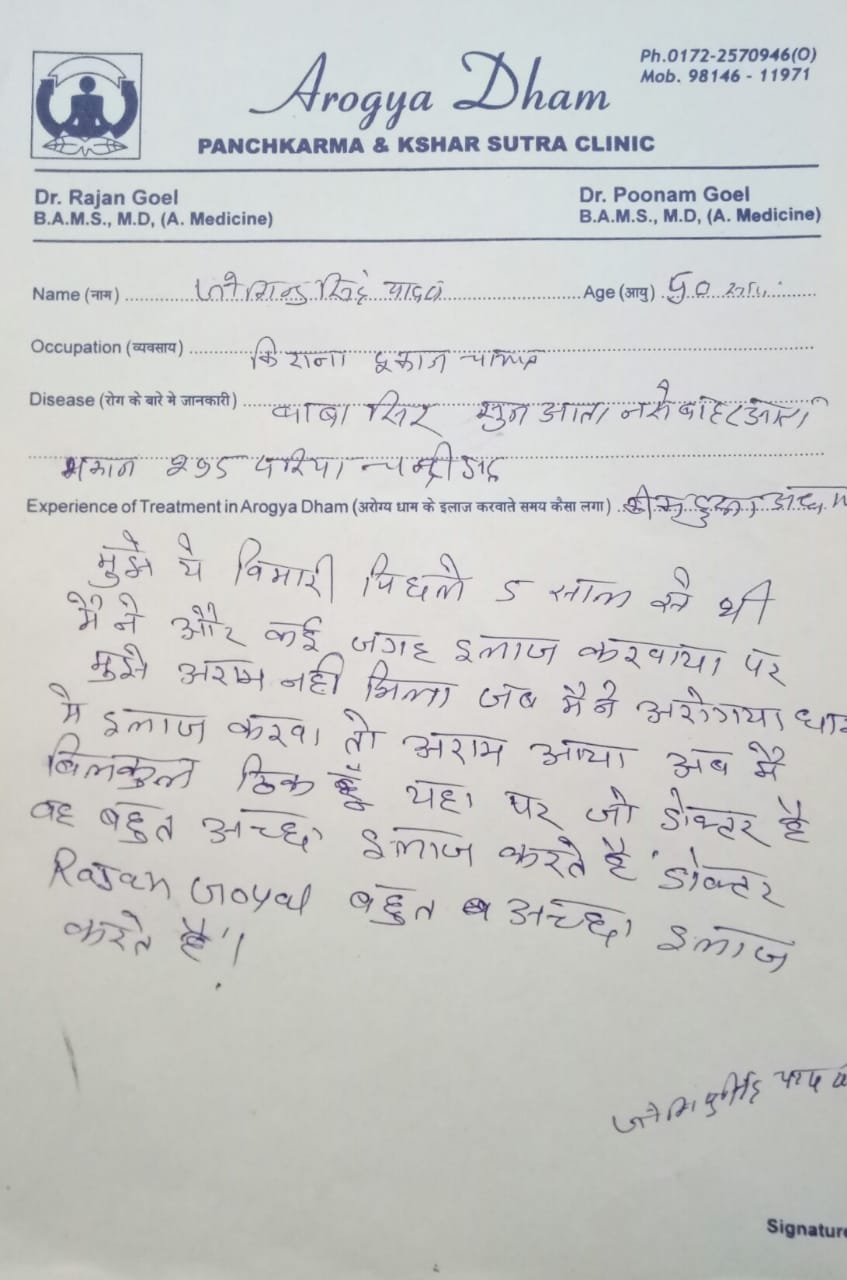 Arogya Dham
Ph.0172-2570946(O)
Mob. 98146 - 11971
PANCHKARMA & KSHAR SUTRA CLINIC
Dr. Rajan Goel
B.A.M.S., M.D, (A. Medicine)
Dr. Poonam Goel
B.A.M.S., M.D, (A. Medicine)
Name (नाम) सिंह यादव Age (आयु) 50
Occupation (व्यवसाय) किराना दुकान
Disease (रोग के बारे मे जानकारी) बाबा सिर खुन आता
मकान
Experience of Treatment in Arogya Dham (अरोग्य धाम के इलाज करवाते समय कैसा लगा)
मुझे ये विमारी पिछले 5 साल से थी
मैं ने और कई जगह इलाज करवाया पर
मुझे अराम नही मिला जब मैं ने अरोगया धाम
मे इलाज करवा तो अराम आया अब मै
बिलकुल ठिक हूँ यहा पर जो डोक्टर है
वह बहुत अच्छा इलाज करते है डोक्टर
Rajan Goyal बहुत अच्छा इलाज
करते है।
यादव
Signature